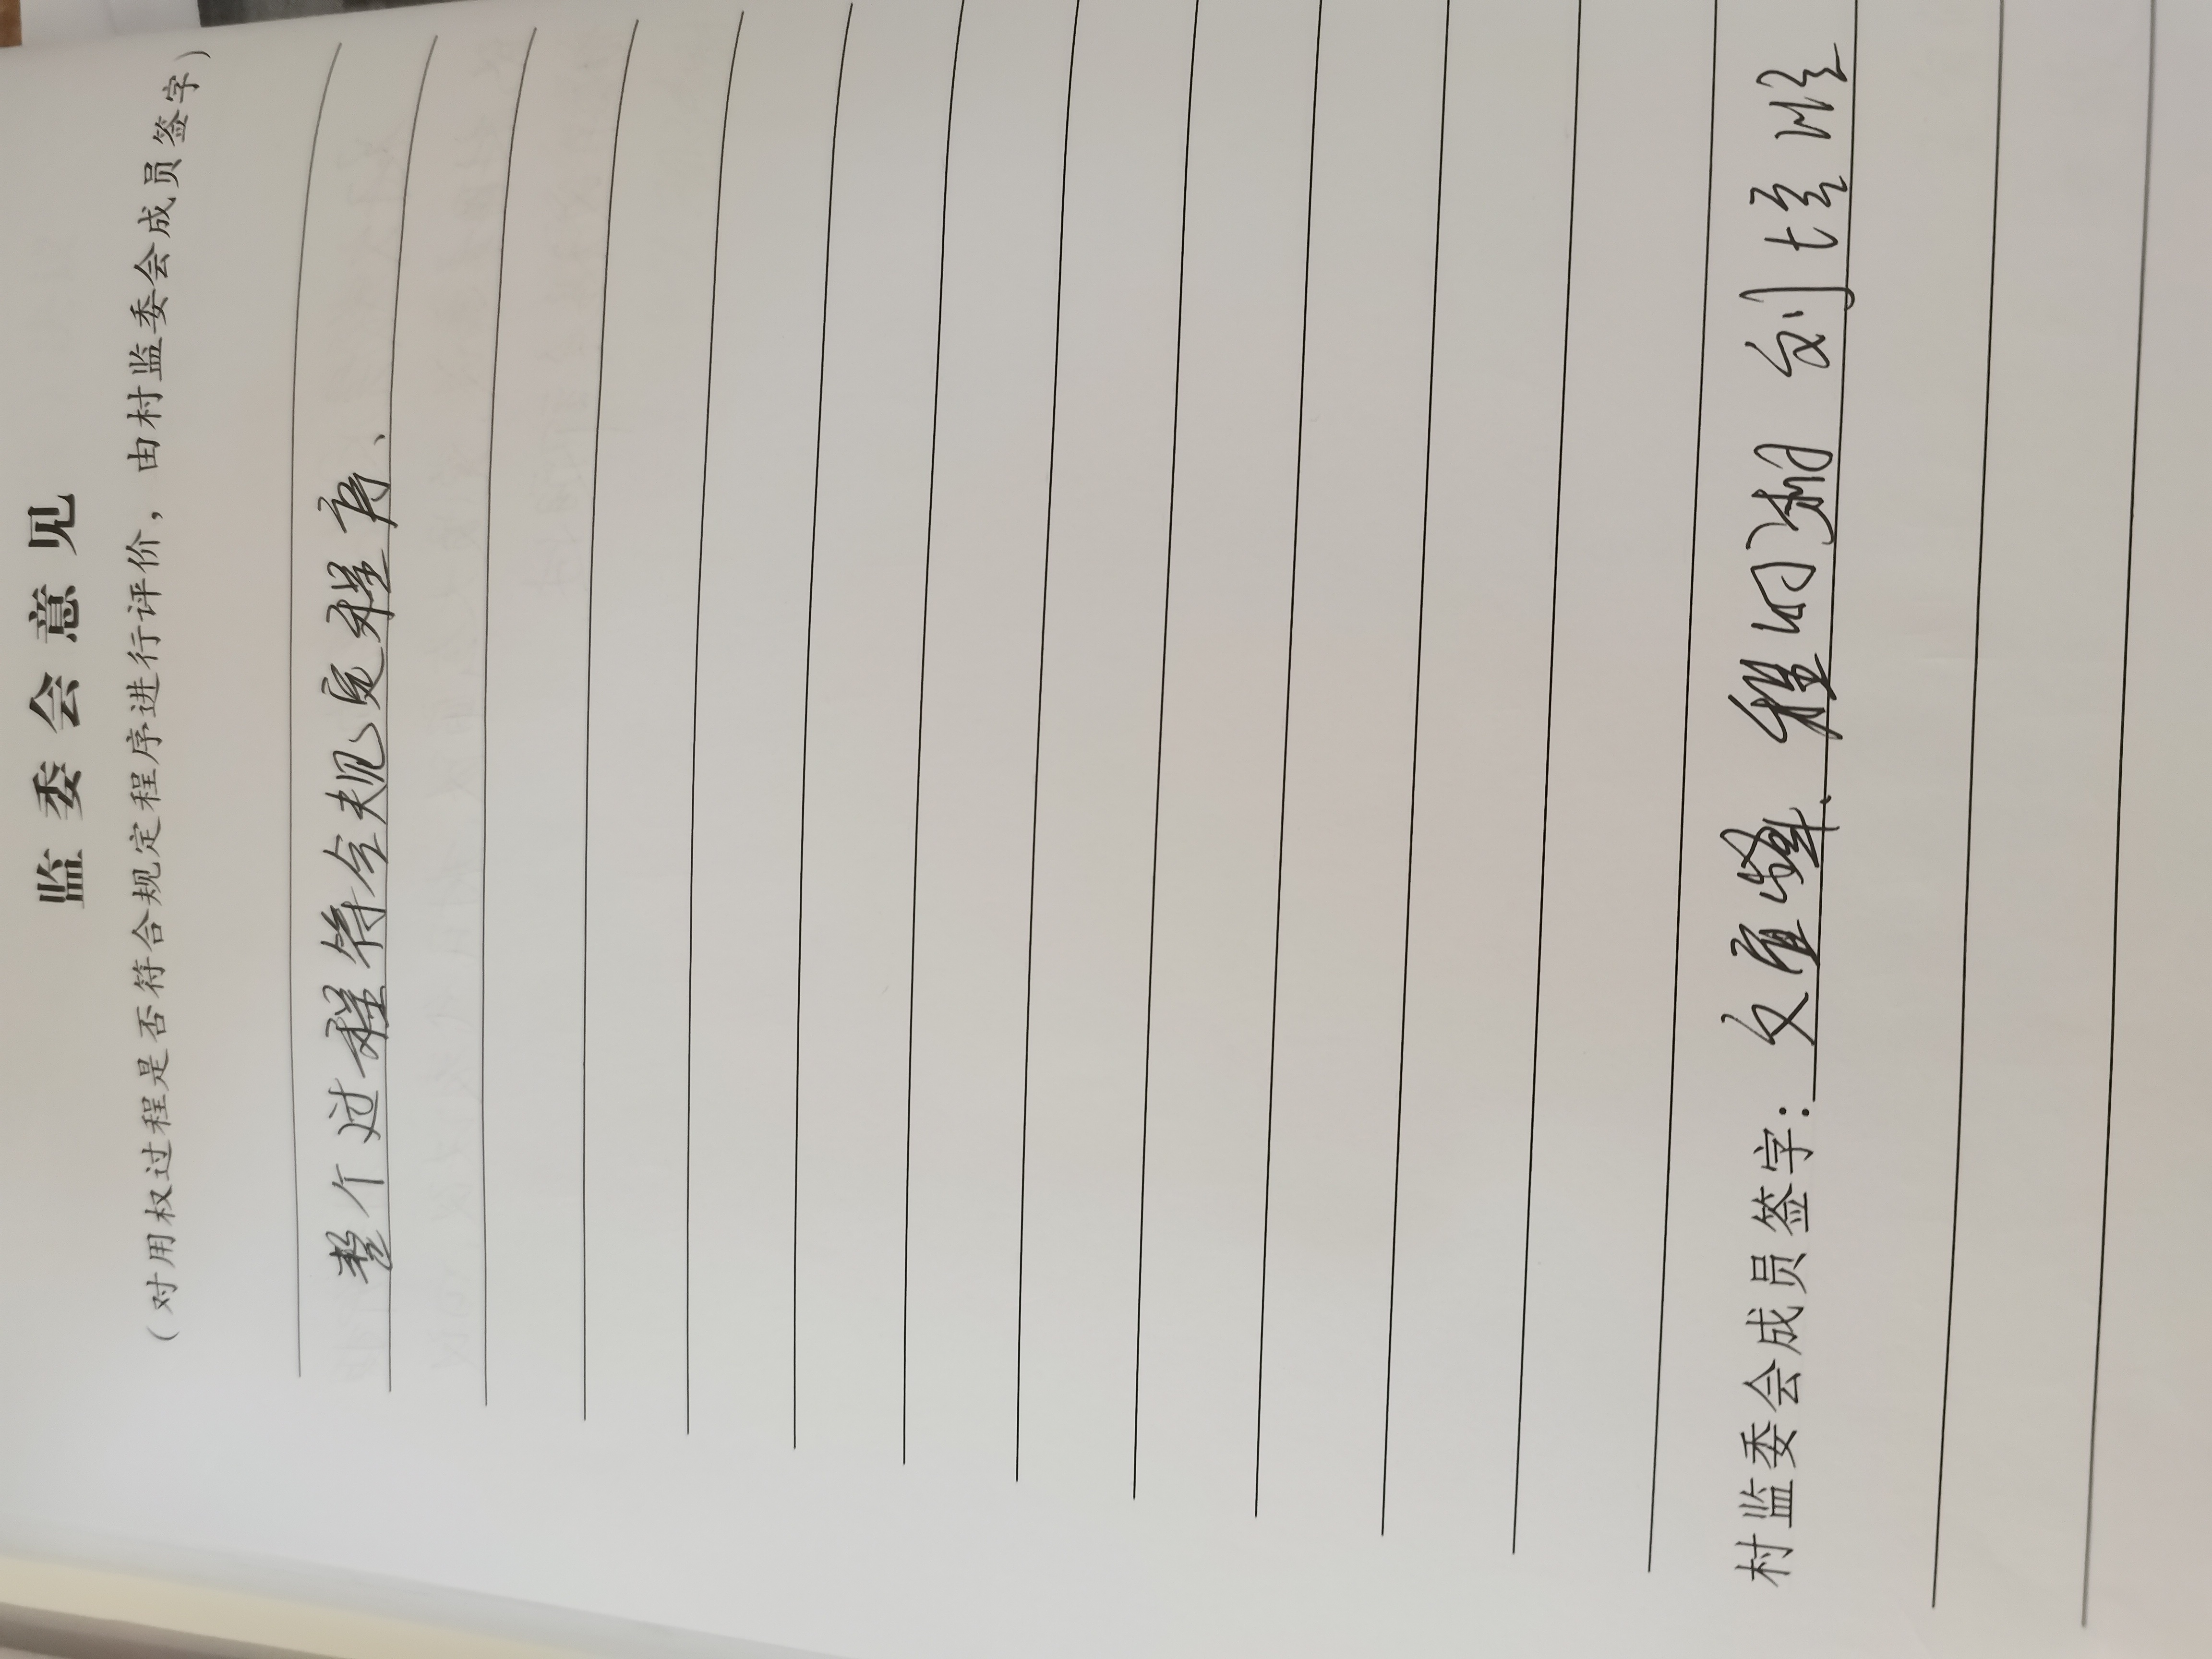 监委会意见
（对用权过程是否符合规定程序进行评价，由村监委会成员签字）
整个过程符合规定程序、
村监委会成员签字： 程 刘